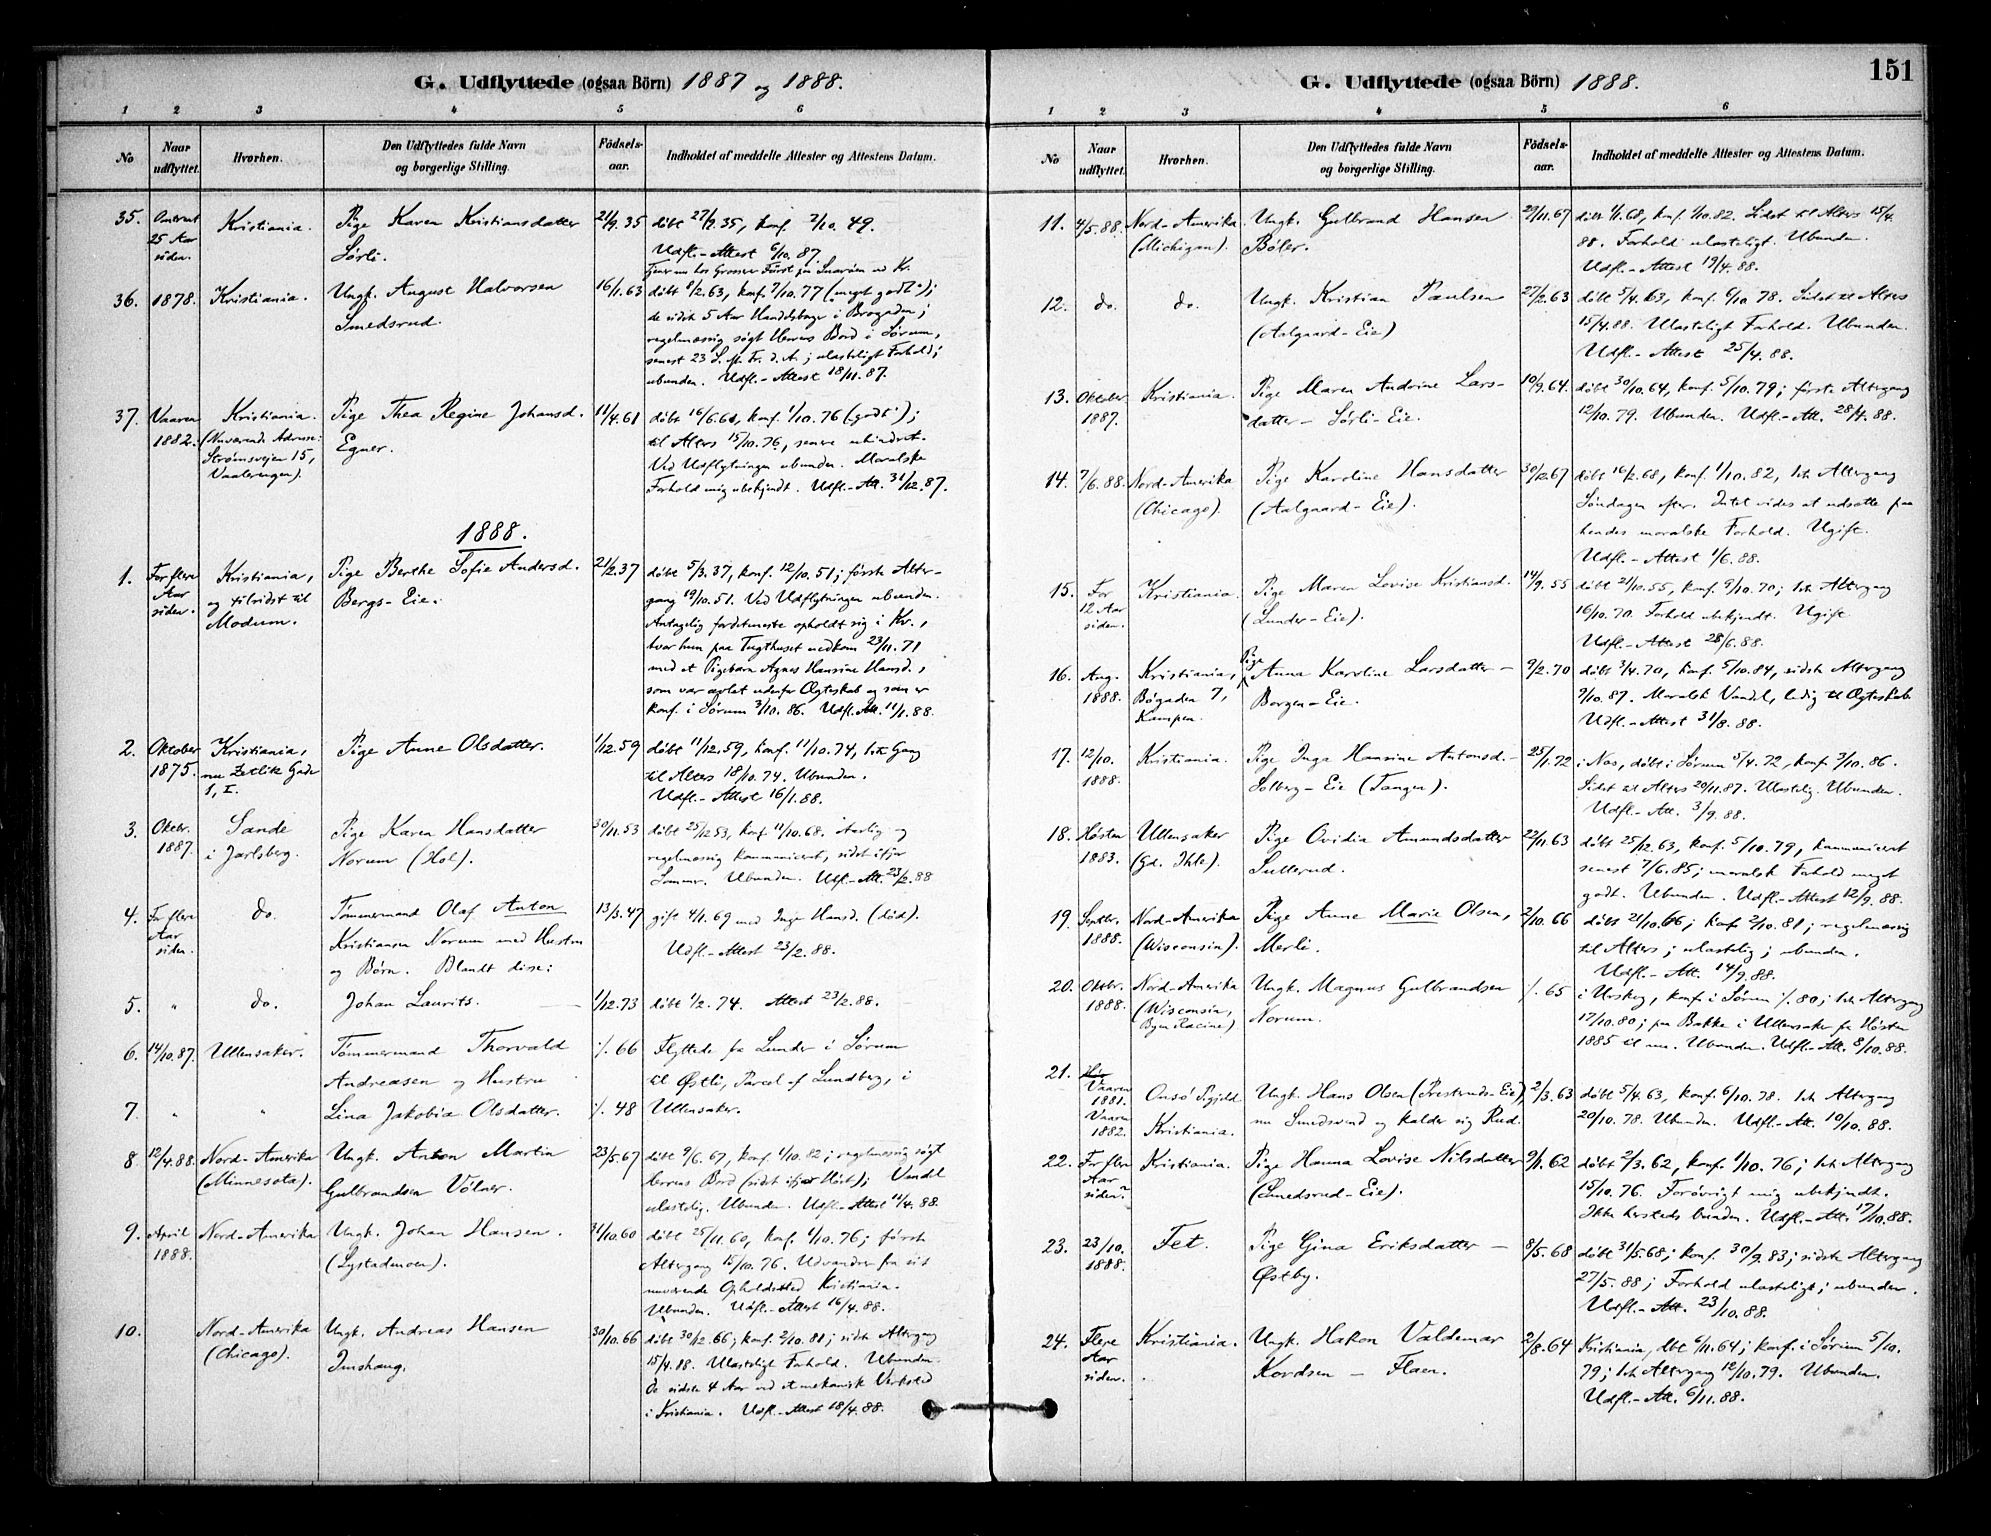 G. Udflyttede (ogsaa Börn) 1887 og 1888.
1 2 3 4 5 6
No
Naar udflyttet.
Hvorhen.
Den Udflyttedes fulde Navn og borgerlige Stilling.
Födsels-aar.
Indholdet af meddelte Attester og Attestens Datum.
35. Omtrent 25 Aar siden. Kristiania. Pige Karen Kristiansdatter Sörli. 21/9.35 döbt 27/9.35, konf. 2/10.49.
Udfl.-Attest 6/10.87.
Tjener nu hos Grosserer Först paa Snarøen ved Kr.
36. 1878. Kristiania. Ungk. August Halvorsen Smedsrud. 16/1.63 döbt 8/2.63, konf. 7/10.77 (meget godt);
de sidste 5 Aar Handelsbager i Brogaden;
regelmæssig søgt Herrens Bord i Sørum,
senest 23 S. p. Tr. d. A.; ulasteligt Forhold;
ubunden. Udfl.-Attest 18/11.87.
37. Vaaren 1882. Kristiania.
(Nuværende Adresse:
Strømsveien 15,
Vaalerengen).
Pige Thea Regine Johansd. Egner. 11/4.61 döbt 16/6.61, konf. 1/10.76 (godt);
til Alters 15/10.76, senere uhindret.
Ved Udflytningen ubunden. Moralske
Forhold mig ubekjendt. Udfl.-Att. 31/12.87.
1888.
1. For flere Aar siden. Kristiania,
og tilsidst til
Modum.
Pige Berthe Sofie Andersd.
Bergs-Eie.
21/2.37 döbt 5/3.37, konf. 12/10.51; første Alter-
gang 19/10.51. Ved Udflytningen ubunden.
Antagelig fordetmeste opholdt sig i Kr.,
hvor hun paa Tugthuset nedkom 23/11.71
med et Pigebarn Agnes Hansine Hansd.,
som var avlet udenfor Ægteskab og som er
konf. i Sørum 3/10.86. Udfl.-Att. 11/1.88.
2. Oktober 1875. Kristiania,
nu Zetlitz Gade
1, I.
Pige Anne Olsdatter. 1/12.59 döbt 11/12.59, konf. 11/10.74, 1ste Gang
til Alters 18/10.74. Ubunden.
Udfl.-Attest 16/1.88.
3. Oktbr. 1887. Sande
i Jarlsberg.
Pige Karen Hansdatter
Norum (Hol).
30/11.53 döbt 25/12 53, konf. 11/10.68. Aarlig og
regelmæssig kommuniceret, sidst ifjor
Sommer. Ubunden. Udfl.-Att. 23/2.88
4. For flere Aar siden. do. Tömmermand Olaf Anton
Kristiansen Norum med Hustru
og Børn. Blandt disse:
13/3.47 gift 4/1.69 med Inge Hansd. (död).
Udfl.-Attest 23/2.88.
5. " do. Johan Laurits. 1/12.73 döbt 1/2.74. Attest 23/2.88.
6. 14/10.87. Ullensaker. Tömmermand Thorvald
Andreasen og Hustru
./. 66 Flyttede fra Lunder i Sörum
til Østli, Parcel af Lundberg, i
7. " " Lina Jakobia Olsdatter. ./. 48 Ullensaker.
8. 12/4.88. Nord-Amerika
(Minnesota).
Ungk. Anton Martin
Gulbrandsen Völner.
23/5.67 döbt 9/6.67, konf. 1/10.82; regelmæssig søgt
Herrens Bord (sidst ifjor Høst); Vandel
ulastelig. Ubunden. Udfl.-Attest 11/4.88.
9. April 1888. Nord-Amerika Ungk. Johan Hansen.
(Lystadmoen).
31/10.60 döbt 25/11.60, konf. 1/10.76; første
Altergang 15/10.76. Udvandrer fra sit
nuværende Opholdssted Kristiania.
Ubunden. Udfl.-Attest 16/4.88.
10. Nord-Amerika
(Chicago).
Ungk. Andreas Hansen
Imshaug.
30/10.66 döbt 30/12.66; konf. 2/10.81; sidste Altergang
15/4.88. Ulasteligt Forhold. Ubunden.
De sidste 4 Aar ved et mekanisk Verksted
i Kristiania. Udfl.-Attest 18/4.88.
G. Udflyttede (ogsaa Börn) 1888.
151
1 2 3 4 5 6
No
Naar udflyttet.
Hvorhen.
Den Udflyttedes fulde Navn og borgerlige Stilling.
Födsels-aar.
Indholdet af meddelte Attester og Attestens Datum.
11. 4/5.88. Nord-Amerika
(Michigan).
Ungk. Gulbrand Hansen
Böler.
29/11.67 döbt 1/1.68, konf. 1/10.82. Sidst til Alters 15/4.
88. Forhold ulasteligt. Ubunden.
Udfl.-Attest 19/4.88.
12. do. do. Ungk. Kristian Paulsen
(Aalgaard-Eie)
27/2.63 döbt 5/4.63, konf. 6/10.78. Sidst til Alters
15/4.88. Ulasteligt Forhold. Ubunden.
Udfl.-Attest 25/4.88.
13. Oktober 1887. Kristiania. Pige Maren Andrine Lars-
datter - Sörli-Eie.
10/9.64. döbt 30/10.64, konf. 5/10.79; første Altergang
12/10.79. Ubunden. Udfl.-Att. 28/4.88.
14. 7/6.88. Nord-Amerika
(Chicago).
Pige Karoline Hansdatter
(Aalgaard-Eie).
30/12.67 döbt 16/2.68, konf. 1/10.82, 1ste Altergang
Søndagen efter. Intet vides at udsætte paa
hendes moralske Forhold. Ugift.
Udfl.-Attest 1/6.88.
15. For 12 Aar siden. Kristiania. Pige Maren Lovise Kristiansd.
(Lunder-Eie).
14/9.55 döbt 21/10.55, konf. 9/10.70; 1ste Altergang
16/10.70. Forhold ubekjendt. Ugift
Udfl.-Attest 28/6.88.
16. Aug. 1888. Kristiania,
Bøgaden 7,
Kampen.
Pige Anna Karoline Larsdatter -
Borgen-Eie.
9/2.70 döbt 3/4.70, konf. 5/10.84, sidste Altergang
9/10.87. Moralsk Vandel, ledig til Ægteskab.
Udfl.-Attest 31/8.88.
17. 12/10. 1888. Kristiania. Pige Inga Hansine Antonsd. -
Solberg-Eie (Tangen).
25/1.72 i Nes, döbt i Sørum 5/4.72, konf. 3/10.86.
Sidst til Alters 20/11.87. Ulastelig. Ubunden.
Udfl.-Att. 3/9.88.
18. Høsten 1883. Ullensaker
(Gd. Ihle).
Pige Ovidia Amundsdatter
Sullerud.
22/11.63 döbt 25/12.63, konf. 5/10.79, kommuniceret
senest 7/6.85; moralsk Forhold meget
godt. Ubunden. Udfl.-Attest 12/9.88.
19. Septbr. 1888. Nord-Amerika
(Wisconsin).
Pige Anne Marie Olsen,
Merli.
2/10.66 döbt 21/10.66; konf. 2/10.81; regelmæssig
til Alters; ulastelig; ubunden.
Udfl.-Att. 14/9.88.
20. Oktbr. 1888. Nord-Amerika
(Wisconsin,
Byen Racine)
Ungk. Magnus Gulbrandsen
Norum.
./. 65 i Urskog, konf. i Sørum ./. 80; 1ste Altergang
17/10.80; paa Bakke i Ullensaker fra Høsten
1885 til nu. Ubunden. Udfl.-Att. 8/10.88.
21. Vaaren 1881. Onsö Pgjeld
Vaaren 1882. Kristiania.
Ungk. Hans Olsen (Prestrud-Eie),
nu Smedsvend og kalder sig Rud.
2/3.63 döbt 5/4.63, konf. 6/10.78. 1ste Altergang
20/10.78. Ubunden. Udfl.-Att. 10/10.88.
22. For flere Aar siden. Kristiania. Pige Hanna Lovise Nilsdatter
(Smedsrud-Eie).
9/1.62 döbt 2/3.62, konf. 1/10.76; 1ste Altergang
15/10.76. Forøvrigt mig ubekjendt.
Ikke hersteds bunden. Udfl.-Att. 17/10.88.
23. 23/10. 1888. Fet. Pige Gina Eriksdatter -
Østby.
8/5.68 döbt 31/5.68; konf. 30/9.83; sidste Altergang
27/5.88; Forhold ulasteligt; ubunden.
Udfl.-Att. 23/10.88.
24. Flere Aar siden. Kristiania. Ungk. Hakon Valdemar
Kordsen - Flaen.
2/8.64 Kristiania, döbt 6/11.64; konf. i Sørum 5/10.
79; 1ste Altergang 12/10.79. Ubunden.
Udfl.-Att. 6/11.88.